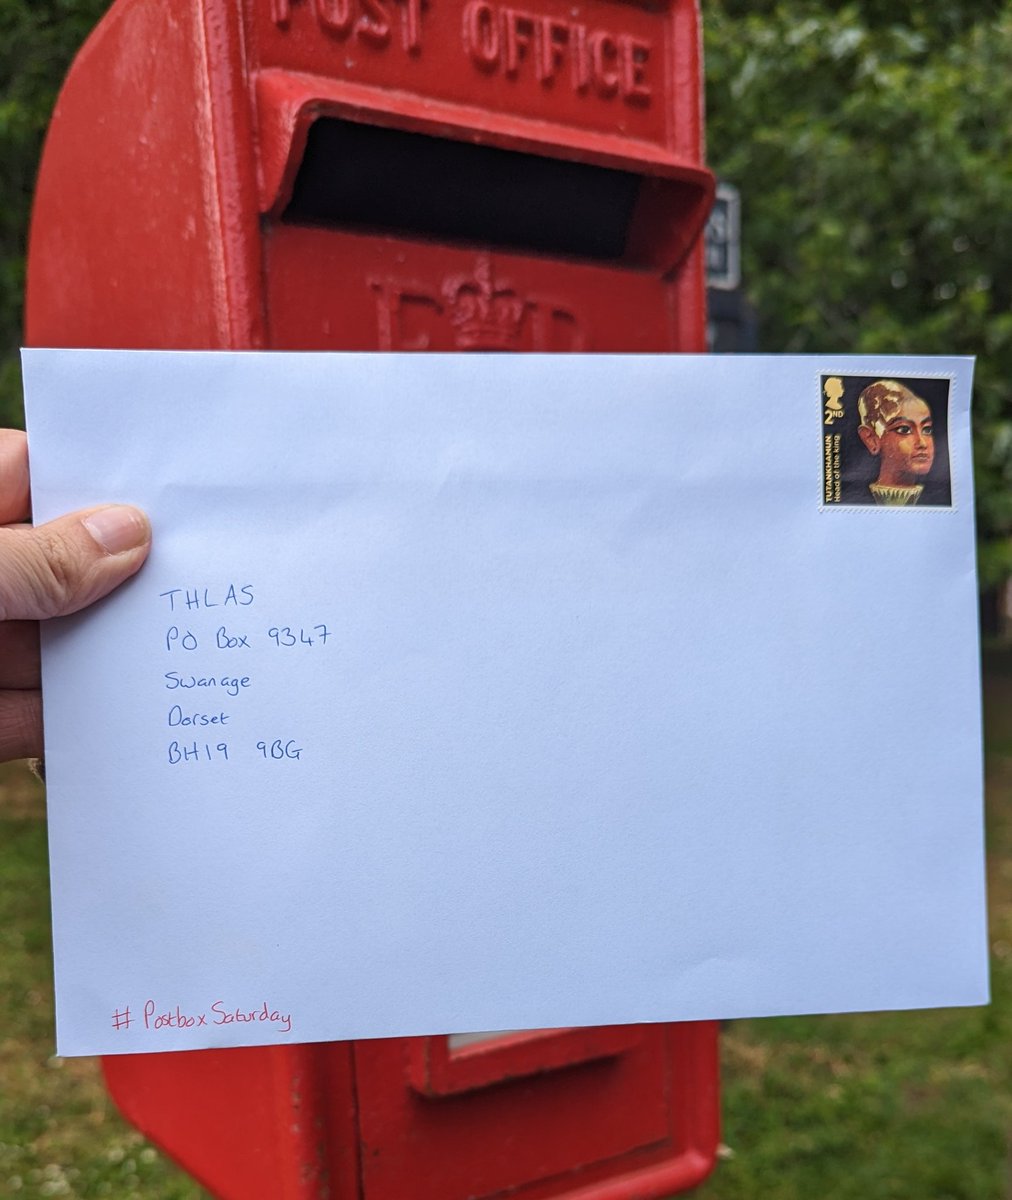 POST OFFICE
E R
2ND
TUTANKHAMUN
Head of the king
THLAS
PO Box 9347
Swanage
Dorset
BH19 9BG
#PostboxSaturday